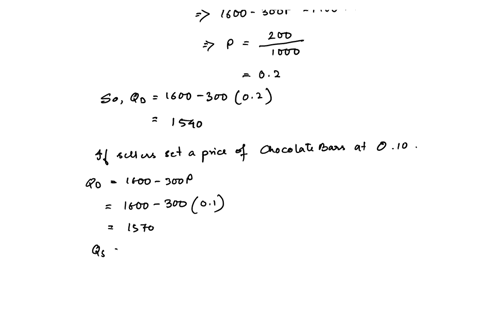 => 1600 - 300P
=> P = 200/1000
= 0.2
So, QD = 1600 - 300 (0.2)
= 1540
If sellers set a price of Chocolate Bars at 0.10.
QD = 1600 - 300P
= 1600 - 300 (0.1)
= 1570
Qs =